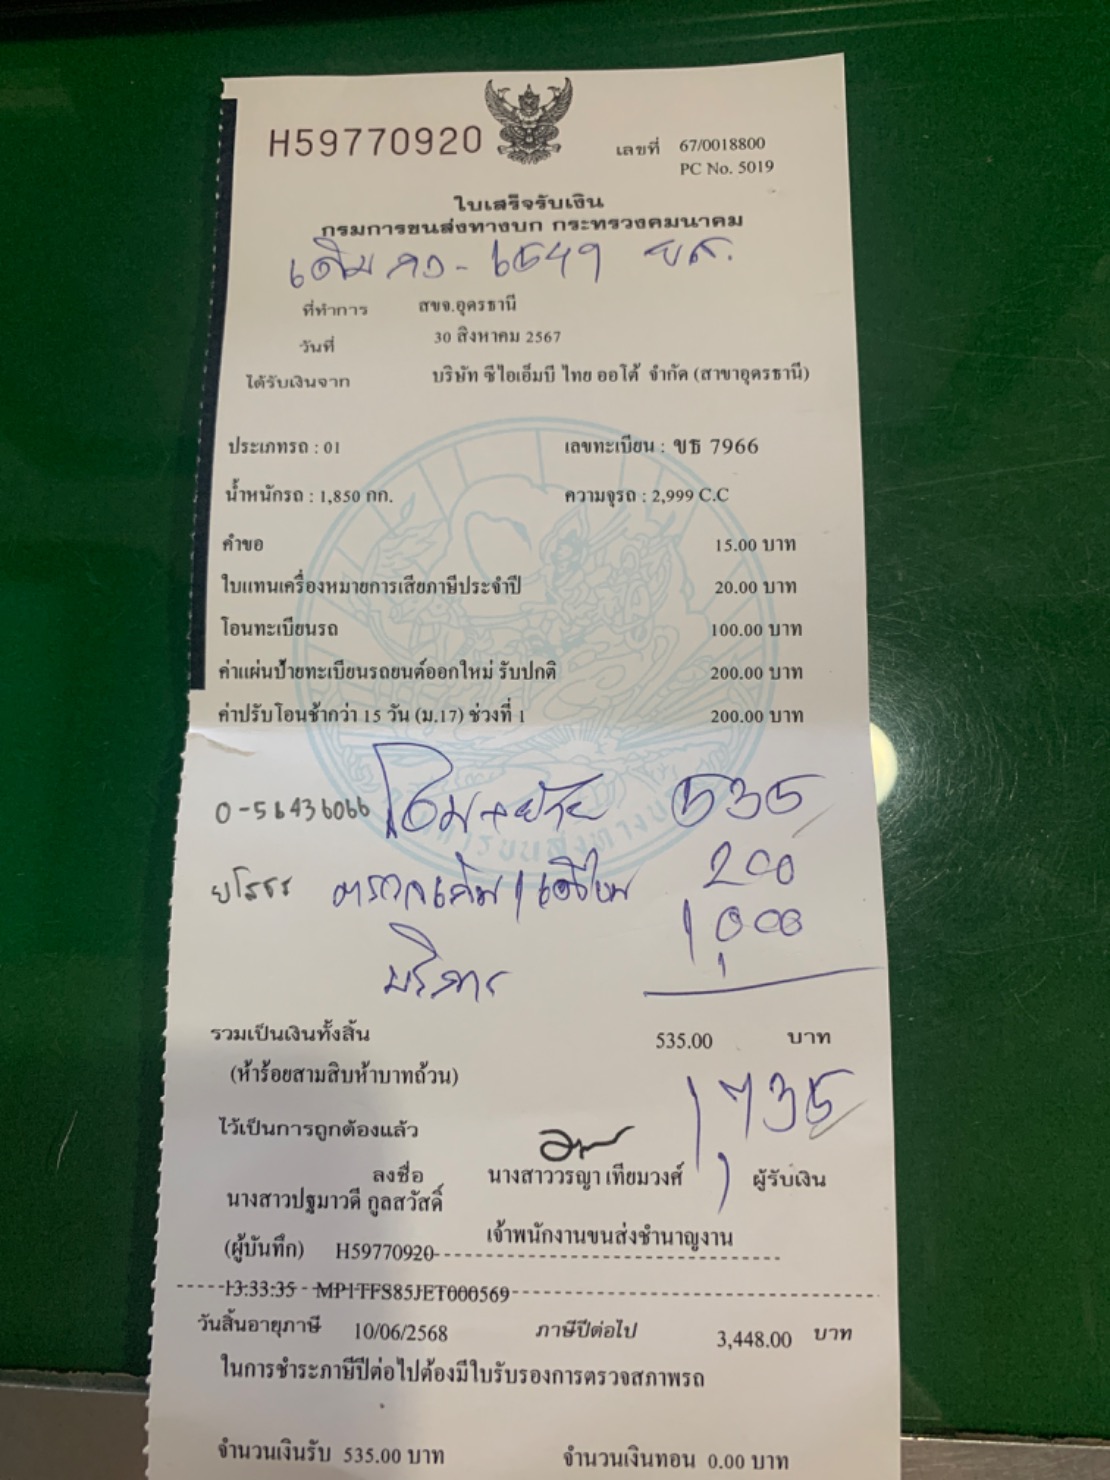 H59770920
เลขที่ 67/0018800
PC No. 5019
ใบเสร็จรับเงิน
กรมการขนส่งทางบก กระทรวงคมนาคม
เดิม กว - 6549 ยส.
ที่ทำการ สขจ.อุดรธานี
วันที่ 30 สิงหาคม 2567
ได้รับเงินจาก บริษัท ซีไอเอ็มบี ไทย ออโต้ จำกัด (สาขาอุดรธานี)
ประเภทรถ : 01 เลขทะเบียน : ขธ 7966
น้ำหนักรถ : 1,850 กก. ความจุรถ : 2,999 C.C
คำขอ 15.00 บาท
ใบแทนเครื่องหมายการเสียภาษีประจำปี 20.00 บาท
โอนทะเบียนรถ 100.00 บาท
ค่าแผ่นป้ายทะเบียนรถยนต์ออกใหม่ รับปกติ 200.00 บาท
ค่าปรับโอนช้ากว่า 15 วัน (ม.17) ช่วงที่ 1 200.00 บาท
0-56436066 535
ยโสธร 200
บริการ 1,000
รวมเป็นเงินทั้งสิ้น 535.00 บาท
(ห้าร้อยสามสิบห้าบาทถ้วน)
1,735
ไว้เป็นการถูกต้องแล้ว
ลงชื่อ นางสาววรญา เทียมวงศ์ ผู้รับเงิน
นางสาวปฐมาวดี กูลสวัสดิ์
เจ้าพนักงานขนส่งชำนาญงาน
(ผู้บันทึก) H59770920
13:33:35 - MP1TFS85JET000569
วันสิ้นอายุภาษี 10/06/2568 ภาษีปีต่อไป 3,448.00 บาท
ในการชำระภาษีปีต่อไปต้องมีใบรับรองการตรวจสภาพรถ
จำนวนเงินรับ 535.00 บาท จำนวนเงินทอน 0.00 บาท